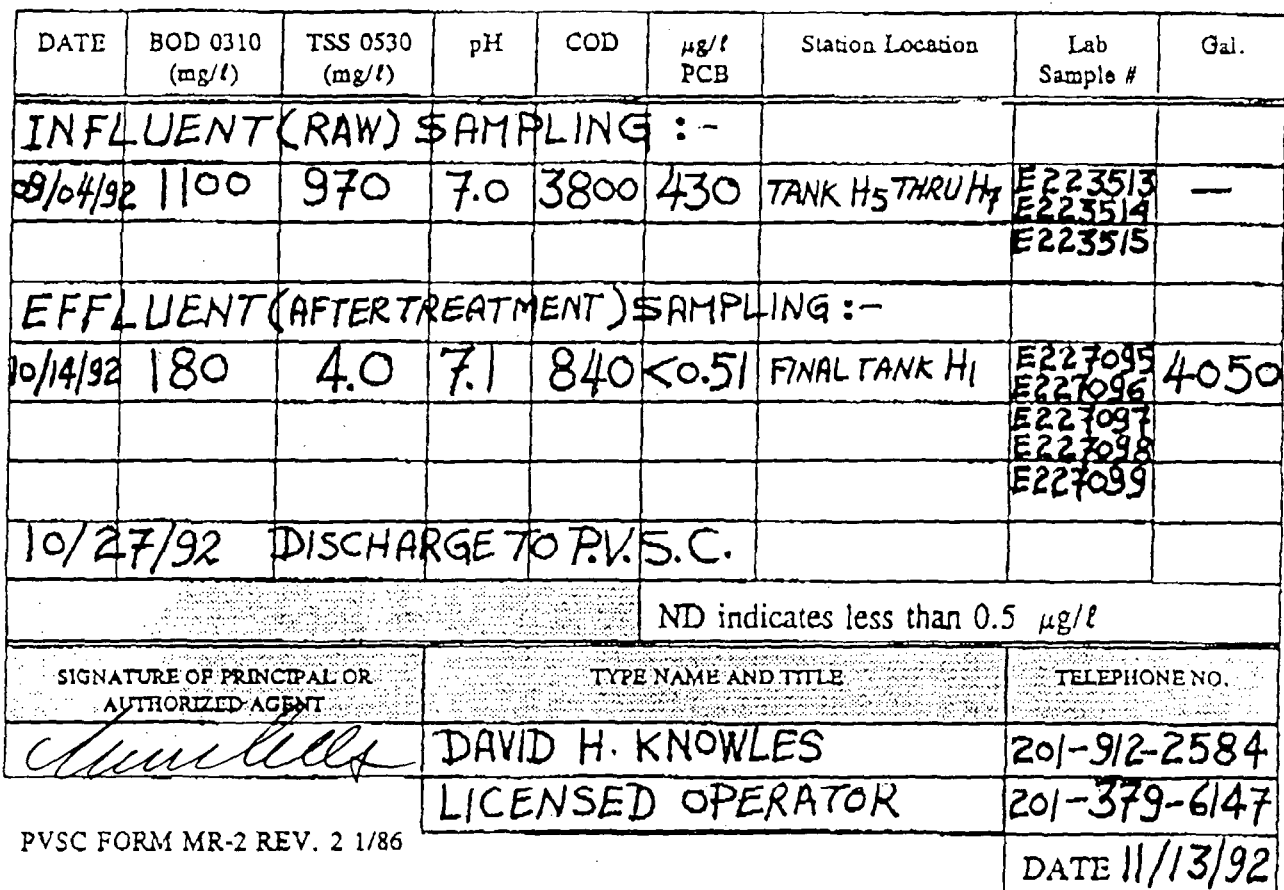 DATE BOD 0310 (mg/ℓ) TSS 0530 (mg/ℓ) pH COD µg/ℓ PCB Station Location Lab Sample # Gal.
INFLUENT (RAW) SAMPLING :-
09/04/92 1100 970 7.0 3800 430 TANK H5 THRU H7 E223513 —
E223514
E223515
EFFLUENT (AFTER TREATMENT) SAMPLING :-
10/14/92 180 4.0 7.1 840 <0.51 FINAL TANK H1 E227095 4050
E227096
E227097
E227098
E227099
10/27/92 DISCHARGE TO P.V.S.C.
ND indicates less than 0.5 µg/ℓ
SIGNATURE OF PRINCIPAL OR AUTHORIZED AGENT TYPE NAME AND TITLE TELEPHONE NO.
DAVID H. KNOWLES 201-912-2584
LICENSED OPERATOR 201-379-6147
PVSC FORM MR-2 REV. 2 1/86
DATE 11/13/92